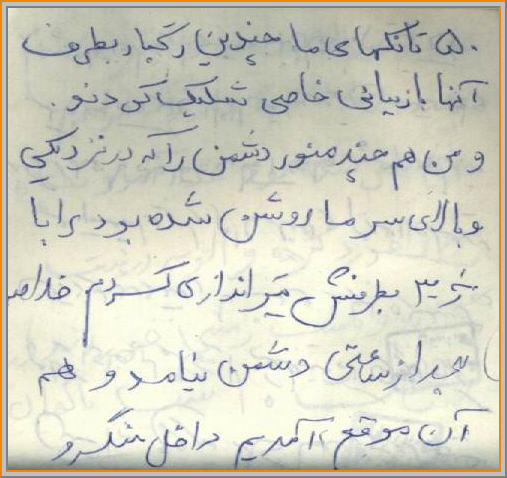 ۵۰ تانکهای ما چندین رگبار بطرف
آنها با زیبائی خاصی شلیک کردند و
و من هم چند منور دشمن را که در نزدیکی
و بالای سر ما روشن شده بود را با
ژ۳ بطرفش تیراندازی کردم خلاصه
بعد از ساعتی دشمن نیامد و هم
آن موقع آمدیم داخل سنگر و